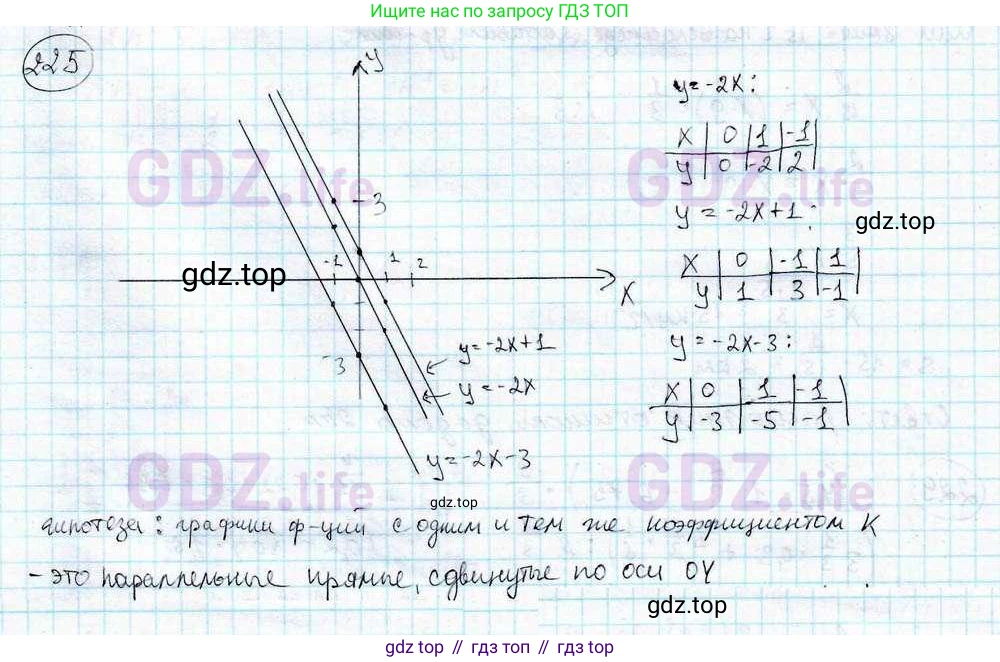 Ищите нас по запросу ГДЗ ТОП
225
y
y=-2x:
x | 0 | 1 | -1
y | 0 | -2 | 2
GDZ.life
GDZ.life
3
y = -2x+1:
gdz.top
-1
1
2
gdz.top
x | 0 | -1 | 1
y | 1 | 3 | -1
x
y=-2x+1
y=-2x-3:
-3
y=-2x
x | 0 | 1 | -1
y | -3 | -5 | -1
y=-2x-3
GDZ.life
GDZ.life
gdz.top
гипотеза: графики ф-ций с одним и тем же коэффициентом K
- это параллельные прямые, сдвинутые по оси OY.
gdz.top
gdz.top // gdz.top // gdz.top